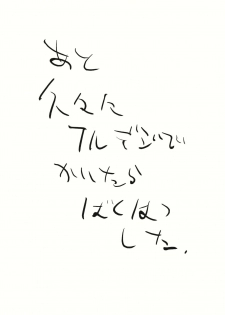 あと
久々に
フルデ
かいたら
ばくはつ
した.